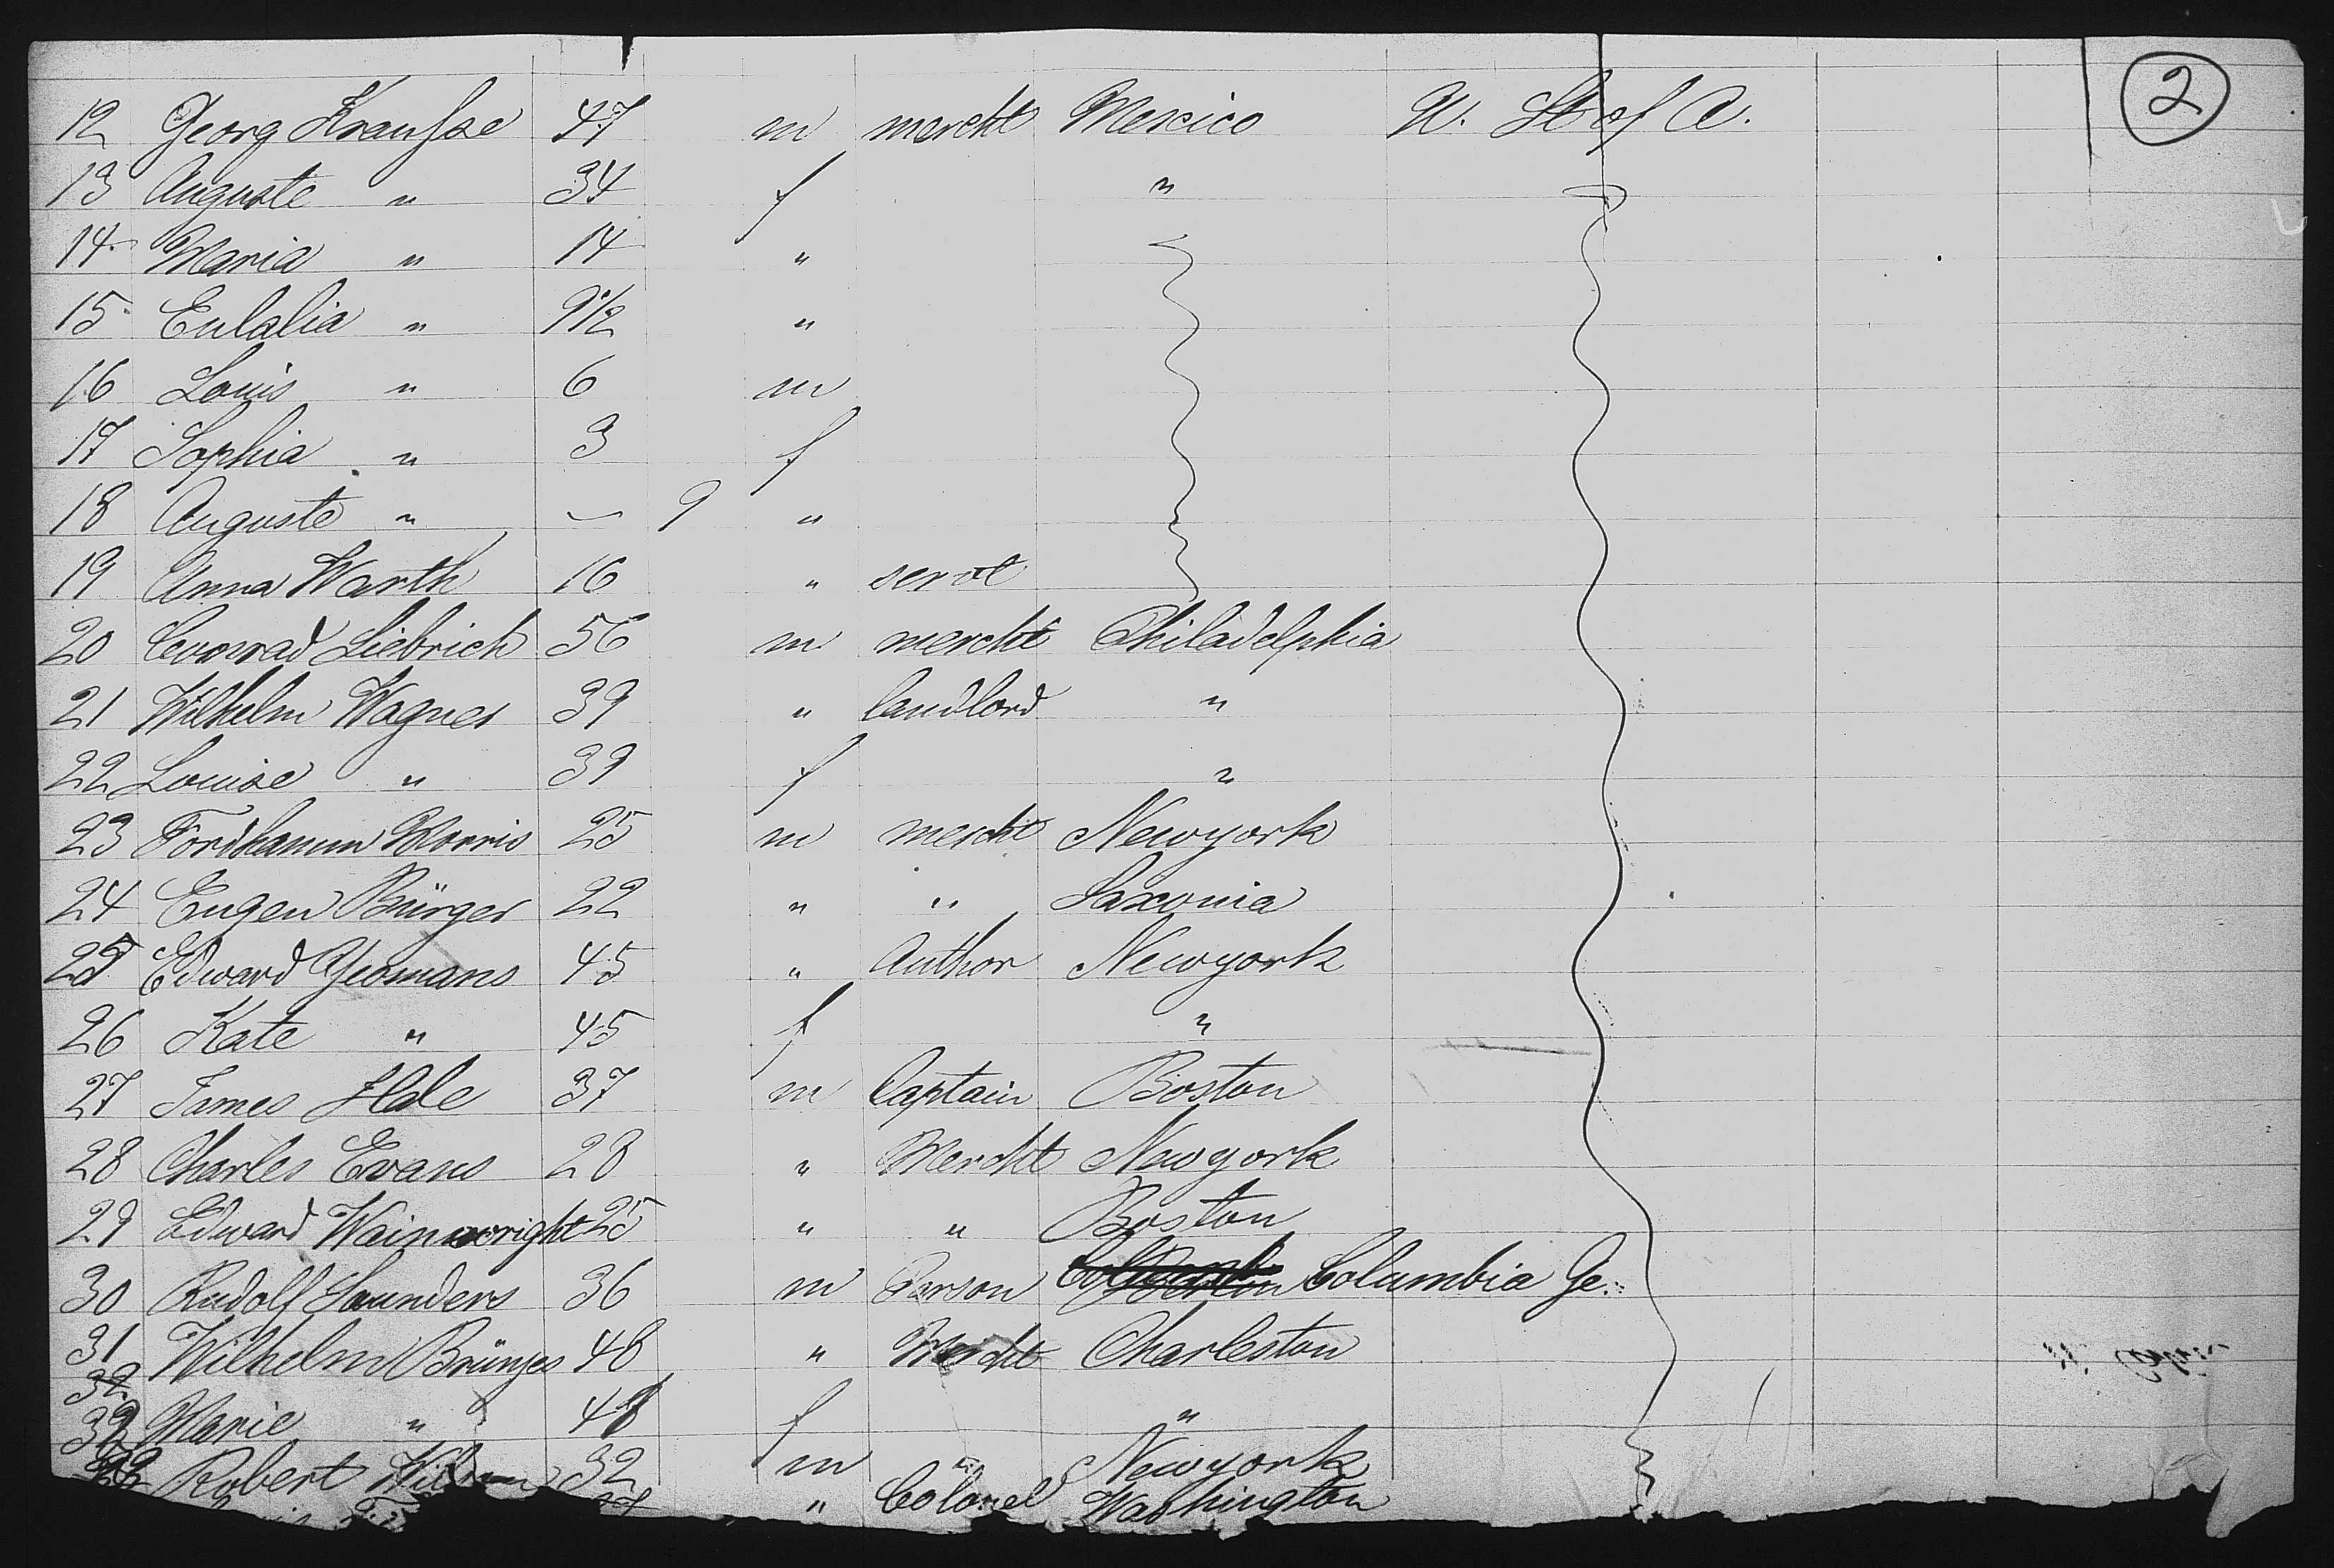 2
12 Georg Kraußse 47 m mercht Mexico U. St of A.
13 Auguste " 34 f "
14 Maria " 14 "
15 Eulalia " 9 1/2 "
16 Louis " 6 m
17 Sophia " 3 f
18 Auguste " — 9 "
19 Anna Warth 16 " servt
20 Conrad Liebrich 56 m mercht Philadelphia
21 Wilhelm Wagner 39 " landlord "
22 Louise " 39 f "
23 Fordhamm Morris 25 m mercht Newyork
24 Eugen Bürger 22 " " Saxonia
25 Edward Yeomans 45 " Author Newyork
26 Kate " 45 f "
27 James Hale 37 m Captain Boston
28 Charles Evans 28 " Mercht Newyork
29 Edward Wainwright 25 " " Boston
30 Rudolf Saunders 36 m Parson Columbia Ge.
31 Wilhelm Brünjes 48 " Mercht Charleston
32 Marie " 48 f "
33 Robert 32 m " Newyork
" Colonel Washington